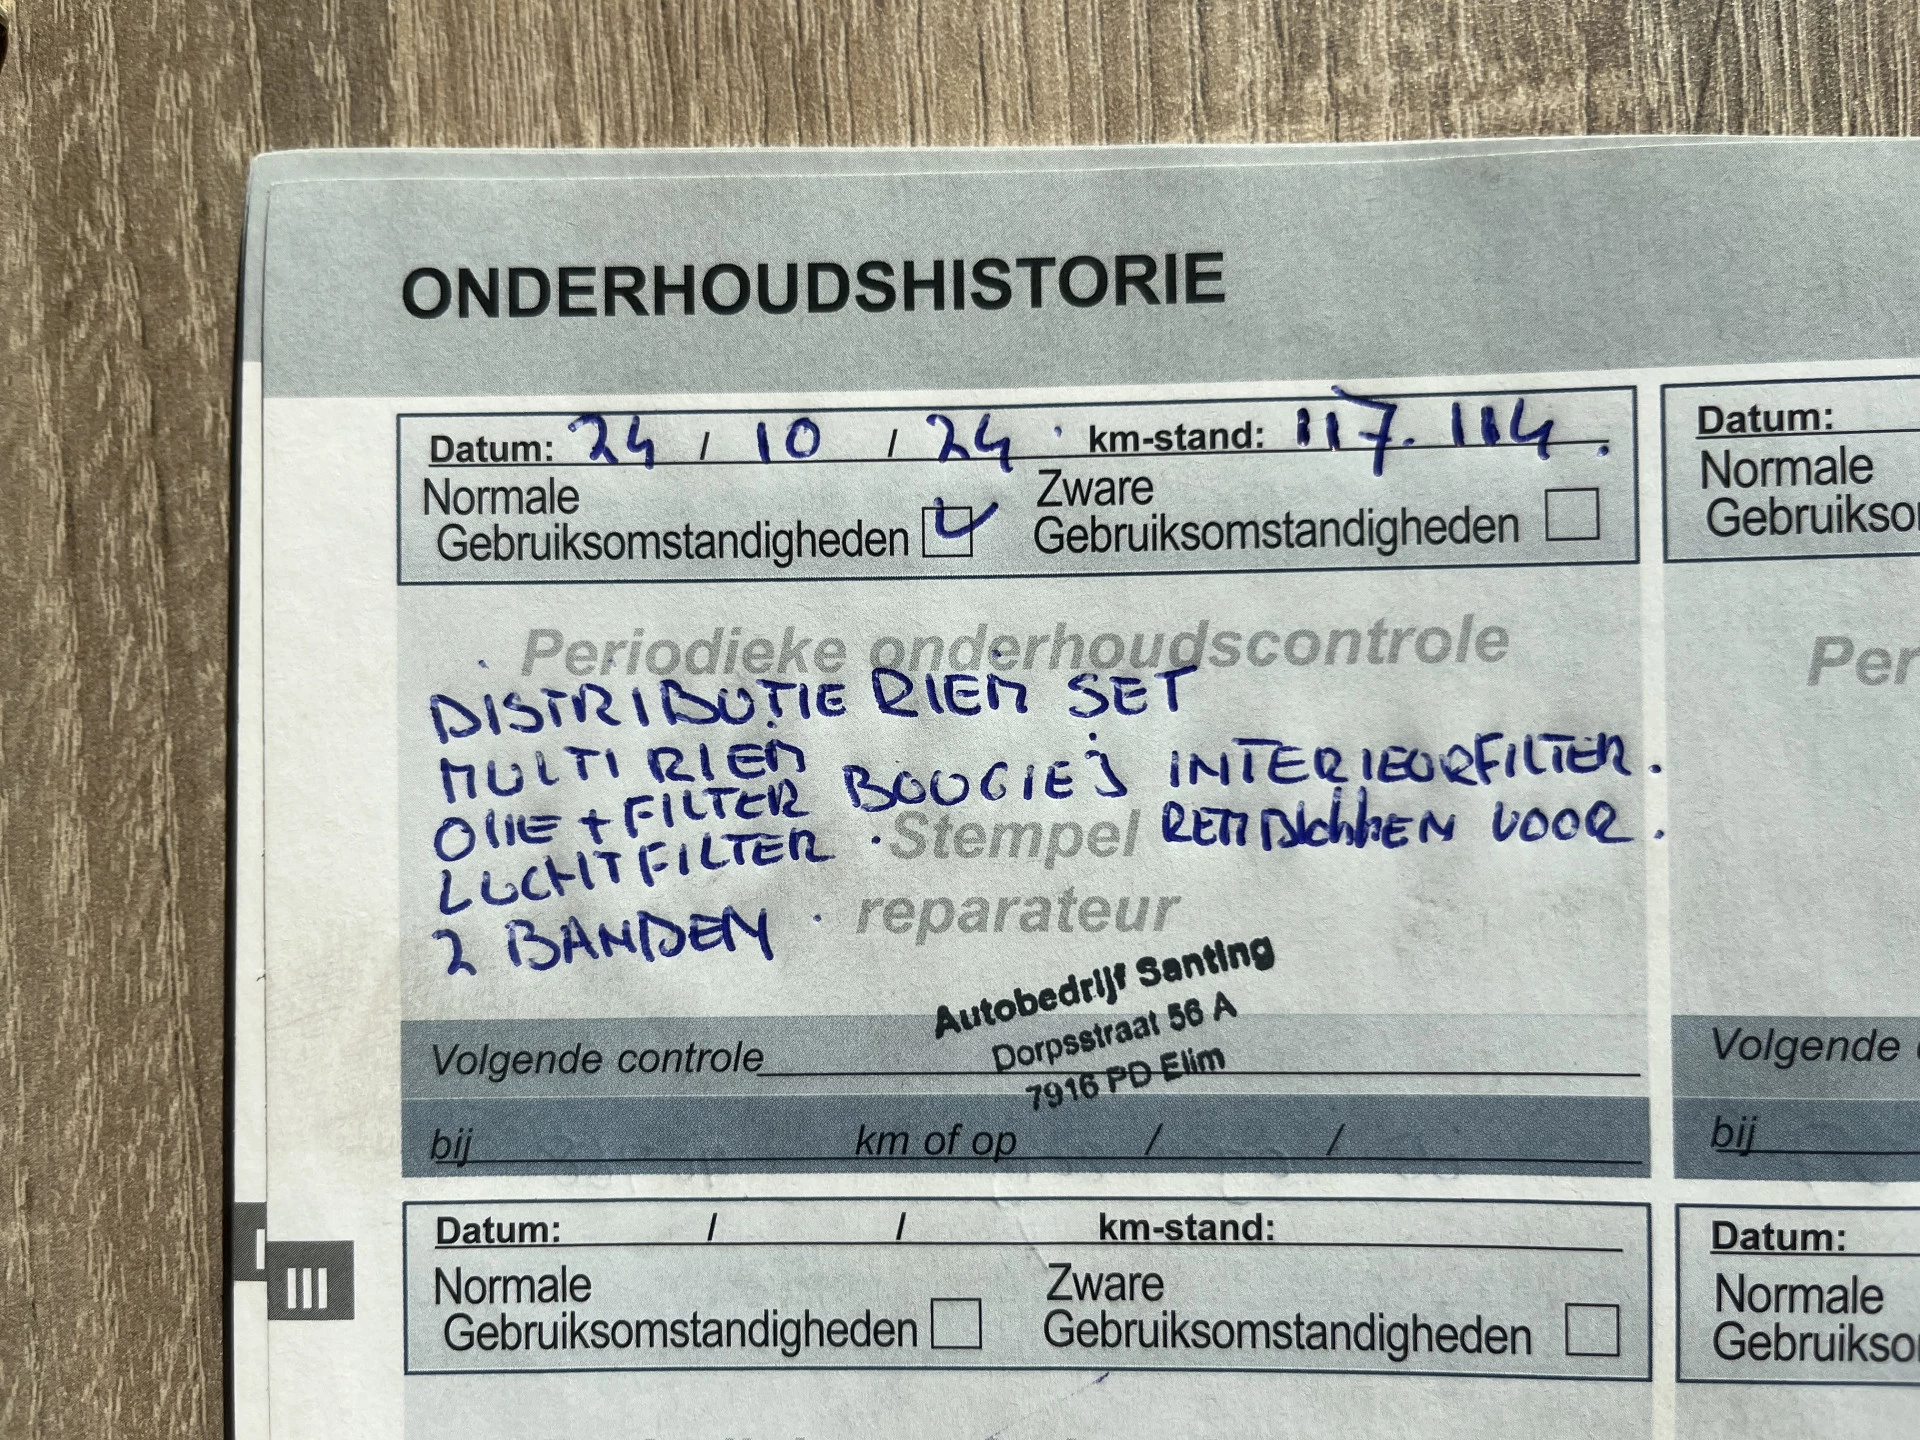 ONDERHOUDSHISTORIE
Datum: 24 / 10 / 24 km-stand: 117.114.
Normale
Gebruiksomstandigheden
Zware
Gebruiksomstandigheden
Periodieke onderhoudscontrole
DISTRIBUTIE RIEM SET
MULTI RIEM
OLIE + FILTER BOUGIE'S INTERIEURFILTER.
LUCHTFILTER. REMBLOKKEN VOOR.
2 BANDEN.
Stempel
reparateur
Autobedrijf Santing
Dorpsstraat 56 A
7916 PD Elim
Volgende controle
bij km of op / /
Datum: / / km-stand:
Normale
Gebruiksomstandigheden
Zware
Gebruiksomstandigheden
III
Datum:
Normale
Gebruikso
Per
Volgende
bij
Datum:
Normale
Gebruikso